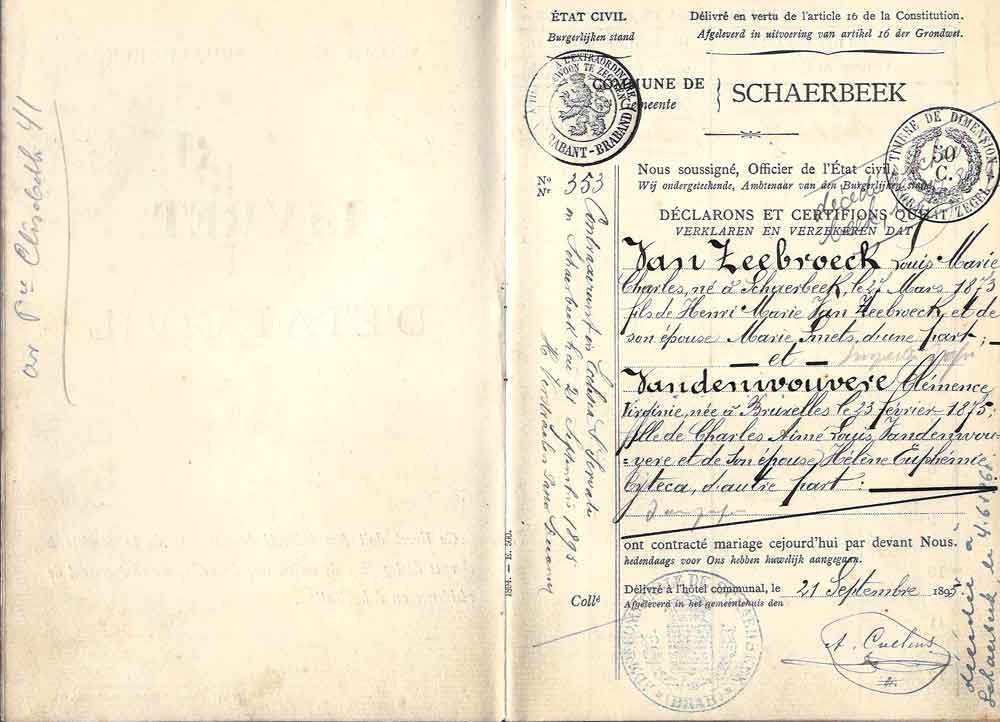 av Pce Elisabeth 41
ÉTAT CIVIL
Burgerlijken stand
Délivré en vertu de l'article 16 de la Constitution.
Afgeleverd in uitvoering van artikel 16 der Grondwet.
COMMUNE DE
Gemeente
SCHAERBEEK
BRABANT-BRABAND
TIMBRE DE DIMENSION
50
C.
FORMAAT ZEGEL
Nous soussigné, Officier de l'État civil,
Wij ondergeteekende, Ambtenaar van den Burgerlijken stand
décédé
DÉCLARONS ET CERTIFIONS QUE
VERKLAREN EN VERZEKEREN DAT
Van Zeebroeck Louis Marie
Charles, né à Schaerbeek, le 27 Mars 1873
fils de Henri Marie Van Zeebroeck et de
son épouse Marie Smets, d'une part;
— et —
Vandenvouvere Clémence
Virginie, née à Bruxelles le 23 février 1875,
fille de Charles Aimé Louis Vandenvou-
=vere et de son épouse, Hélène Euphémie
Cyteca, d'autre part:
ont contracté mariage cejourd'hui par devant Nous.
hedendaags voor Ons hebben huwelijk aangegaan.
Délivré à l'hôtel communal, le 21 Septembre 1895
Afgeleverd in het gemeentehuis den
No
Nr 353
Contraxerunt in Ecclesia S. Servatii
in Schaerbeek hac 21 Septembris 1895
1894. — E. 500.
Collé
décédée à
Schaerbeek le